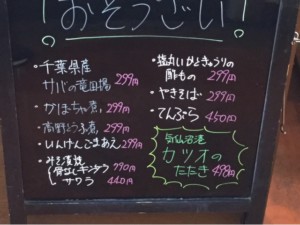 おそうざい!
・千葉県産
サバの竜田揚 299円
・かぼちゃ煮 299円
・高野どうふ煮 299円
・いんげんごまあえ 299円
・みそ漬焼
骨なしキンメダイ 790円
サワラ 440円
・塩丸いかときゅうりの
酢もの 299円
・やきそば 299円
・てんぷら 450円
気仙沼港
カツオの
たたき 498円